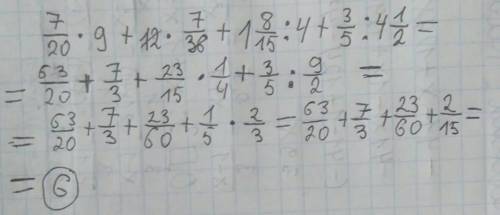 7/20 · 9 + 12 · 7/36 + 1 8/15 : 4 + 3/5 : 4 1/2 =
= 63/20 + 7/3 + 23/15 · 1/4 + 3/5 : 9/2 =
= 63/20 + 7/3 + 23/60 + 1/5 · 2/3 = 63/20 + 7/3 + 23/60 + 2/15 =
= 6